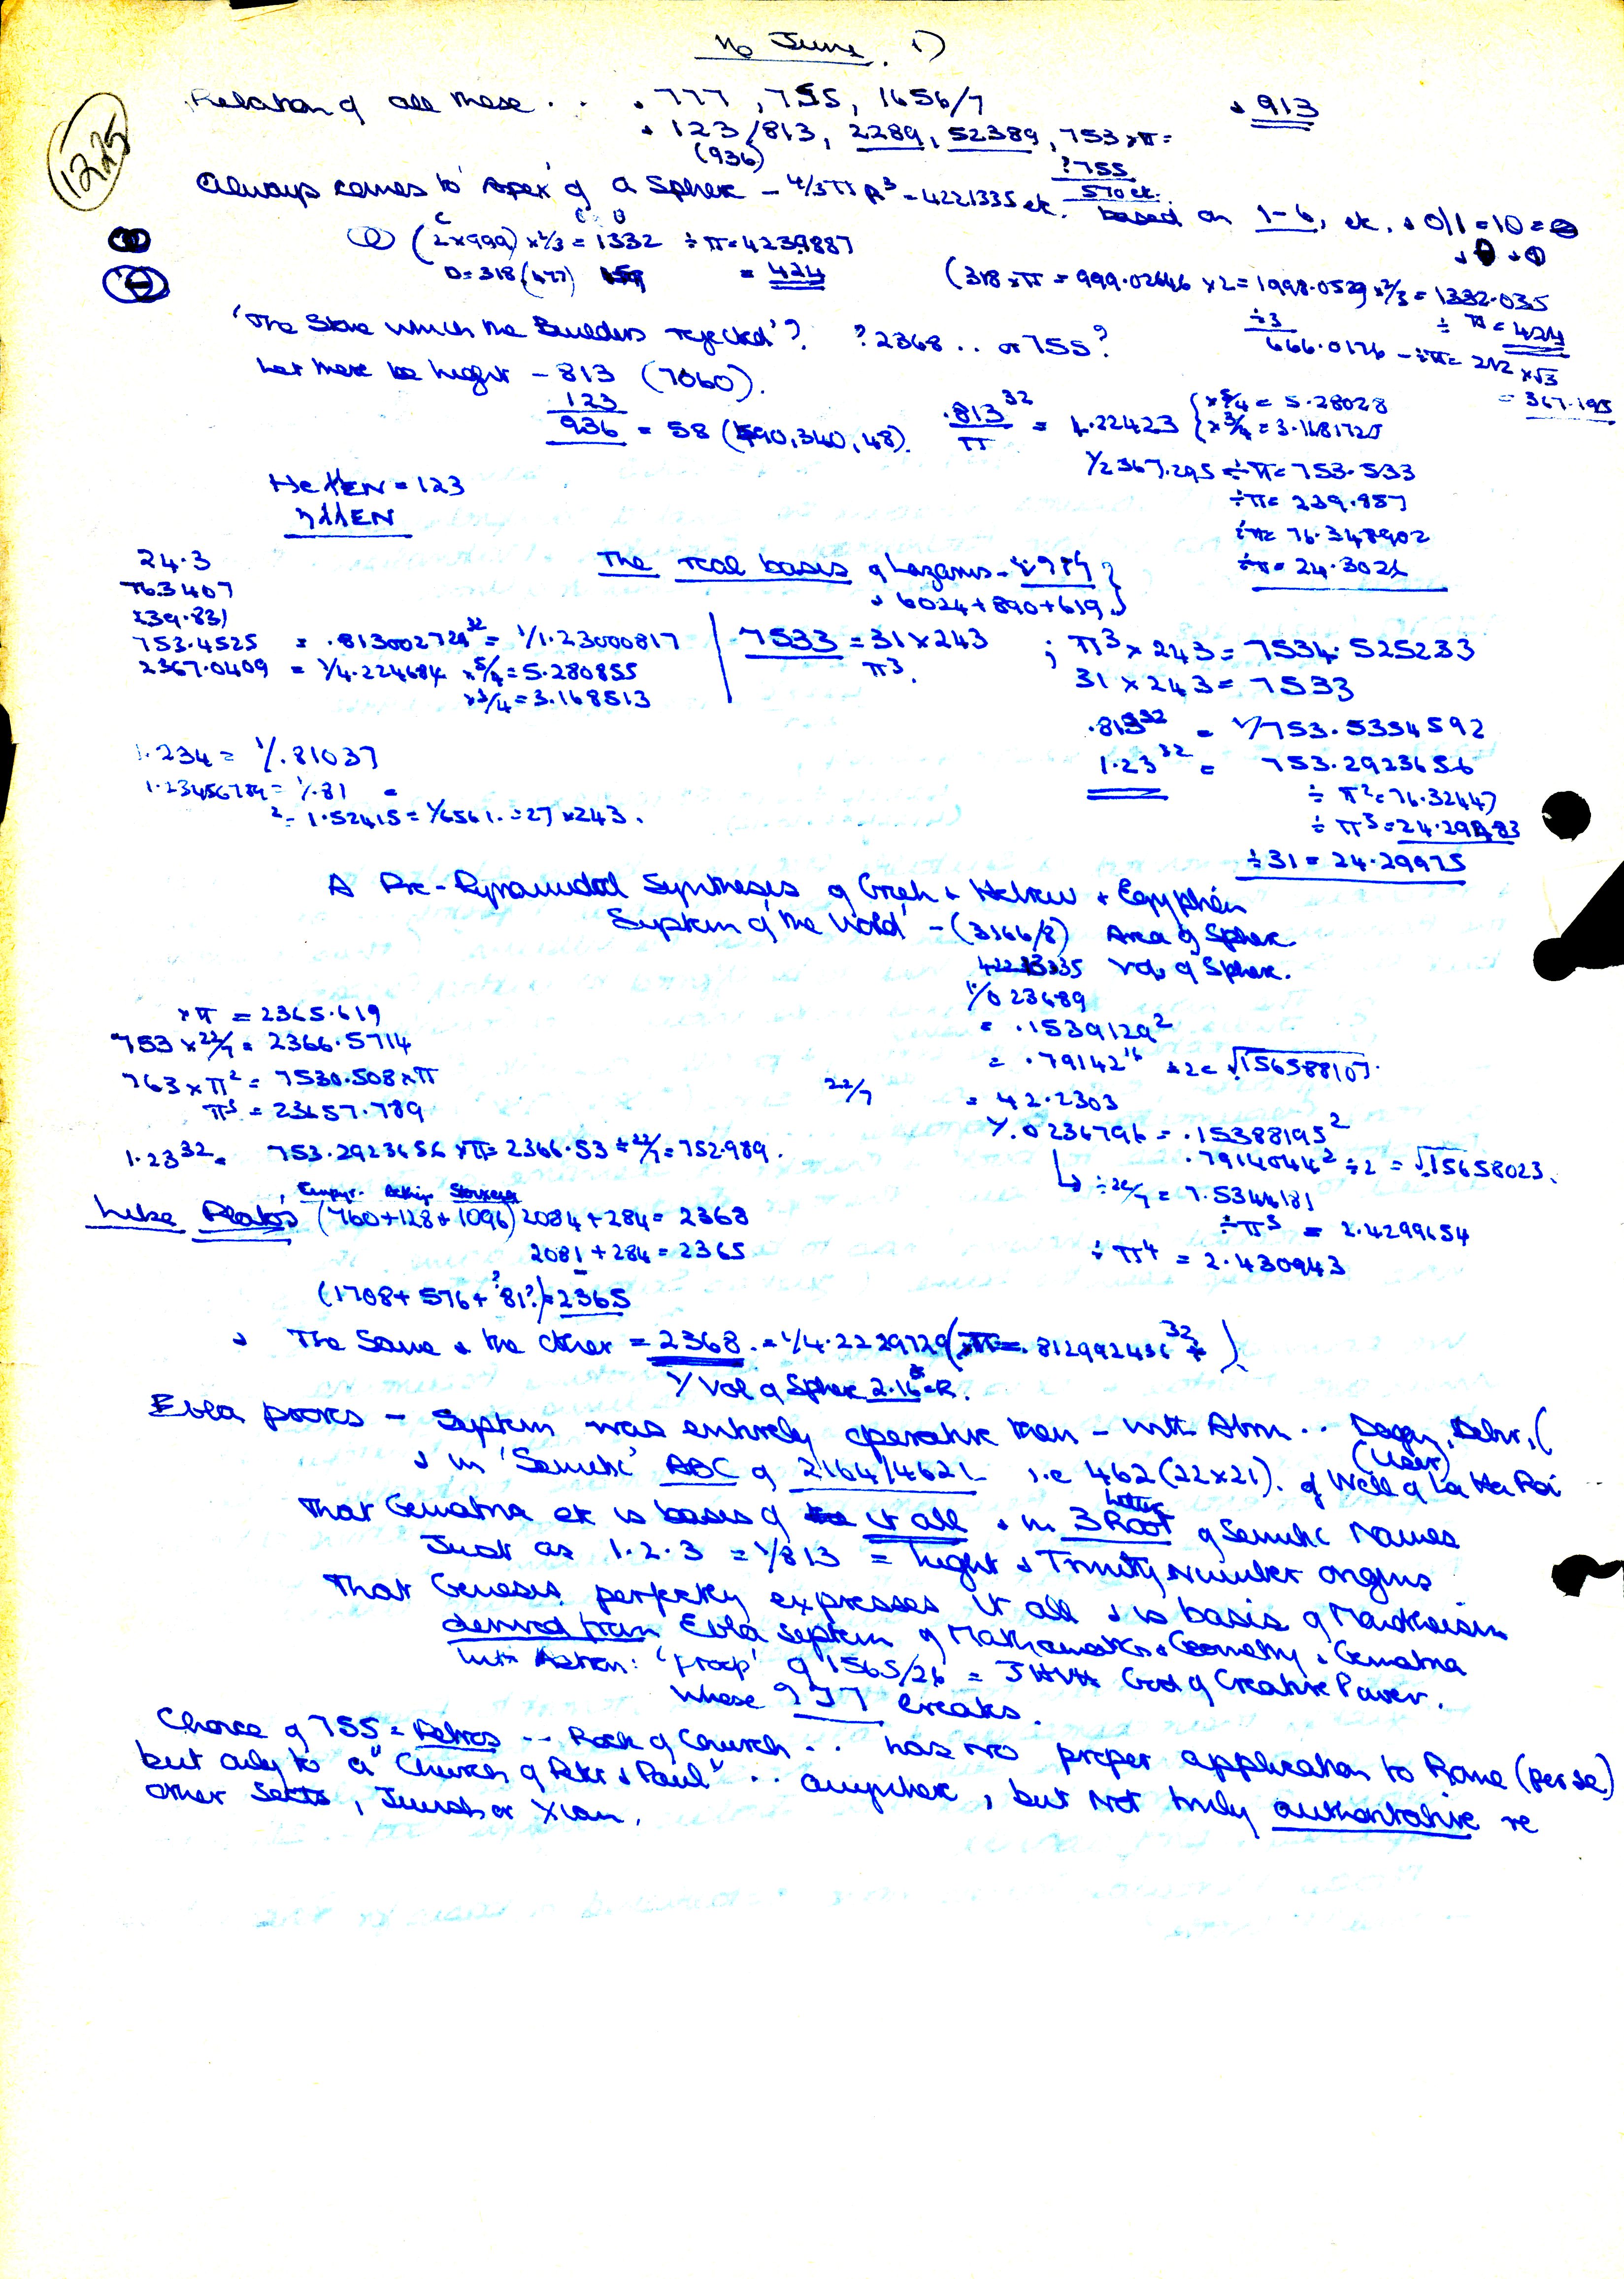 No June. 1)
1225
Relation of all these . . . 777, 755, 1656/7 + 913
+ 123/813, 2289, 52389, 753 x π =
(936) ?755
570 etc.
Always comes to 'Apex' of a Sphere - 4/3 π R³ = 4221335 etc. based on 1-6, etc. + 0/1 = 10 =
(2x999) x 2/3 = 1332 ÷ π = 423.9887
D = 318 (477) = 424
(318 x π = 999.02646 x 2 = 1998.0529) x 2/3 = 1332.035
÷3 ÷ π = 424
666.0176 - ÷π = 212 x √3
= 367.195
'The Stone which the Builders rejected'? ?2368 .. or 755?
Let there be light - 813 (7060).
123
936 = 58 (590, 340, 48).
.813³² / π = 4.22423 { x 5/4 = 5.28028
x 3/4 = 3.1681725
1/2367.295 ÷ π = 753.533
÷π = 239.857
÷π = 76.348902
÷π = 24.3026
HeλλEN = 123
ηλλEN
The real basis of Lazarus -
+ 6024 + 890 + 619
24.3
763407
239.831
753.4525 = .813002729³² = 1/1.23000817
2367.0409 = 1/4.224684 x 5/4 = 5.280855
x 3/4 = 3.168513
7533 = 31 x 243
π³.
; π³ x 243 = 7534.525233
31 x 243 = 7533
.813³² = 1/753.5334592
1.23³² = 753.2923656
÷ π² = 76.32447
÷ π³ = 24.29483
÷ 31 = 24.29975
1.234 = 1/.81037
1.23456789 = 1/.81 =
² = 1.52415 = 1/6561. = 27 x 243.
A Pre-Pyramidal Synthesis of Greek + Hebrew + Egyptian
System of the World - (3166/8) Area of Sphere
Vol. of Sphere.
1/.023689
= .1539129²
= .79142¹⁶ ÷2 = √156588107.
22/7 = 42.2303
1/.0236796 = .15388195²
.7914044² ÷ 2 = √.15658023.
÷ 22/7 = 7.5344181
÷ π³ = 2.4299654
÷ π⁴ = 2.430943
x π = 2365.619
753 x 22/7 = 2366.5714
763 x π² = 7530.508 x π
π³ = 23657.789
1.23³² = 753.2923656 x π = 2366.53 ÷ 22/7 = 752.989.
Like Plato's (760 + 128 + 1096) 2084 + 284 = 2368
2081 + 284 = 2365
(1708 + 576 + ?81?) = 2365
+ The Same + the Other = 2368. = 1/4.2229729 (x π = .812992436³²)
1/Vol of Sphere 2.16 = R.
Ebla proves - System was entirely operative then - with Abm ..
+ in 'Semitic' ABC of 2164/4621 i.e 462 (22x21). of Well of La Ha Roi
That Gematria etc is basis of it all + in 3 Root Letter of Semitic Names
Just as 1.2.3 = 1/813 = Light + Trinity Number origins
That Genesis perfectly expresses it all + is basis of Monotheism
derived from Ebla system of Mathematics + Geometry + Gematria
with Action: 'proof' of 1565/26 = JHVH God of Creative Power.
Whose 977 Creates.
Choice of 755 = Petros .. Rock of Church .. has no proper application to Rome (per se)
but only to a "Church of Peter + Paul" .. anywhere, but not truly authoritative re
other Sects, Jewish or Xian.